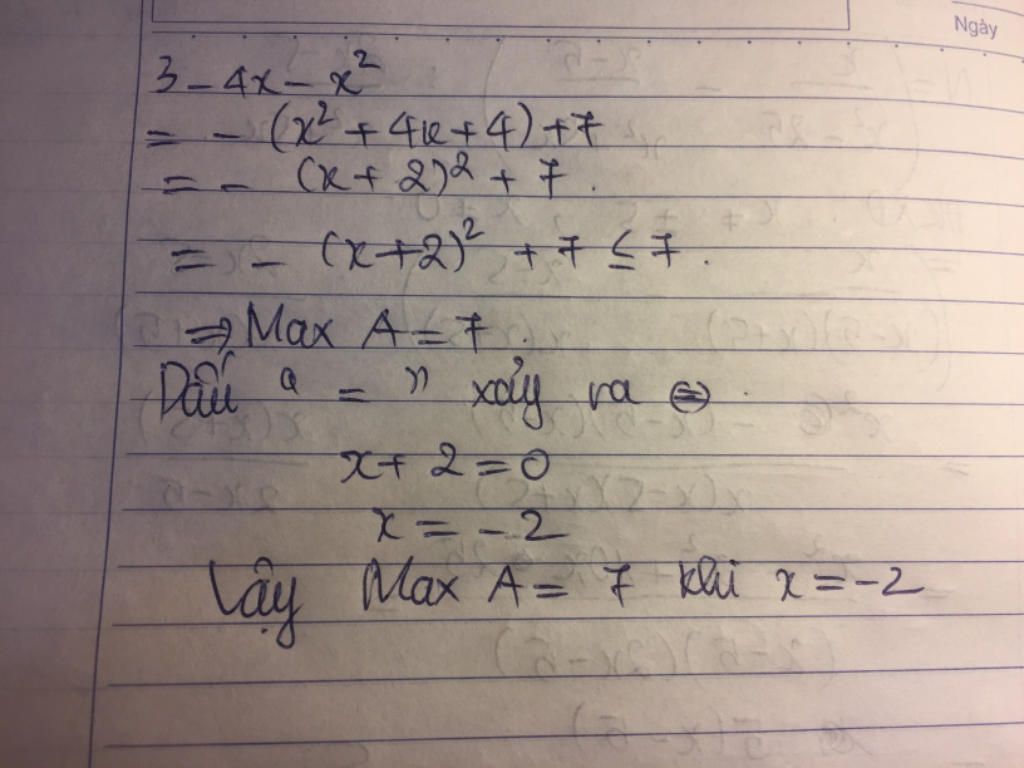 Ngày
3 - 4x - x²
= - (x² + 4x + 4) + 7
= - (x + 2)² + 7.
= - (x + 2)² + 7 ≤ 7.
⇒ Max A = 7.
Dấu " = " xảy ra ⇔
x + 2 = 0
x = -2
Vậy Max A = 7 khi x = -2